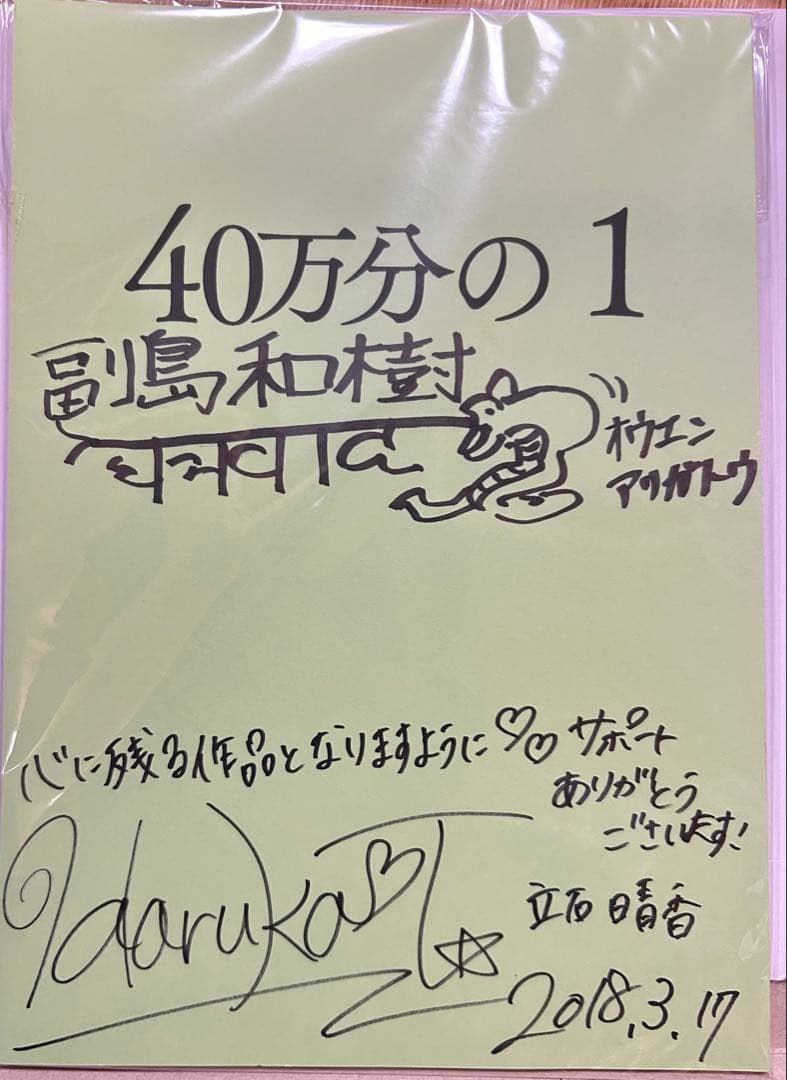 40万分の1
副島和樹
धन्यवाद
オウエン
アリガトウ
心に残る作品となりますように♡♡
サポート
ありがとう
ございます!
Haruka♡T☆
立石晴香
2018.3.17